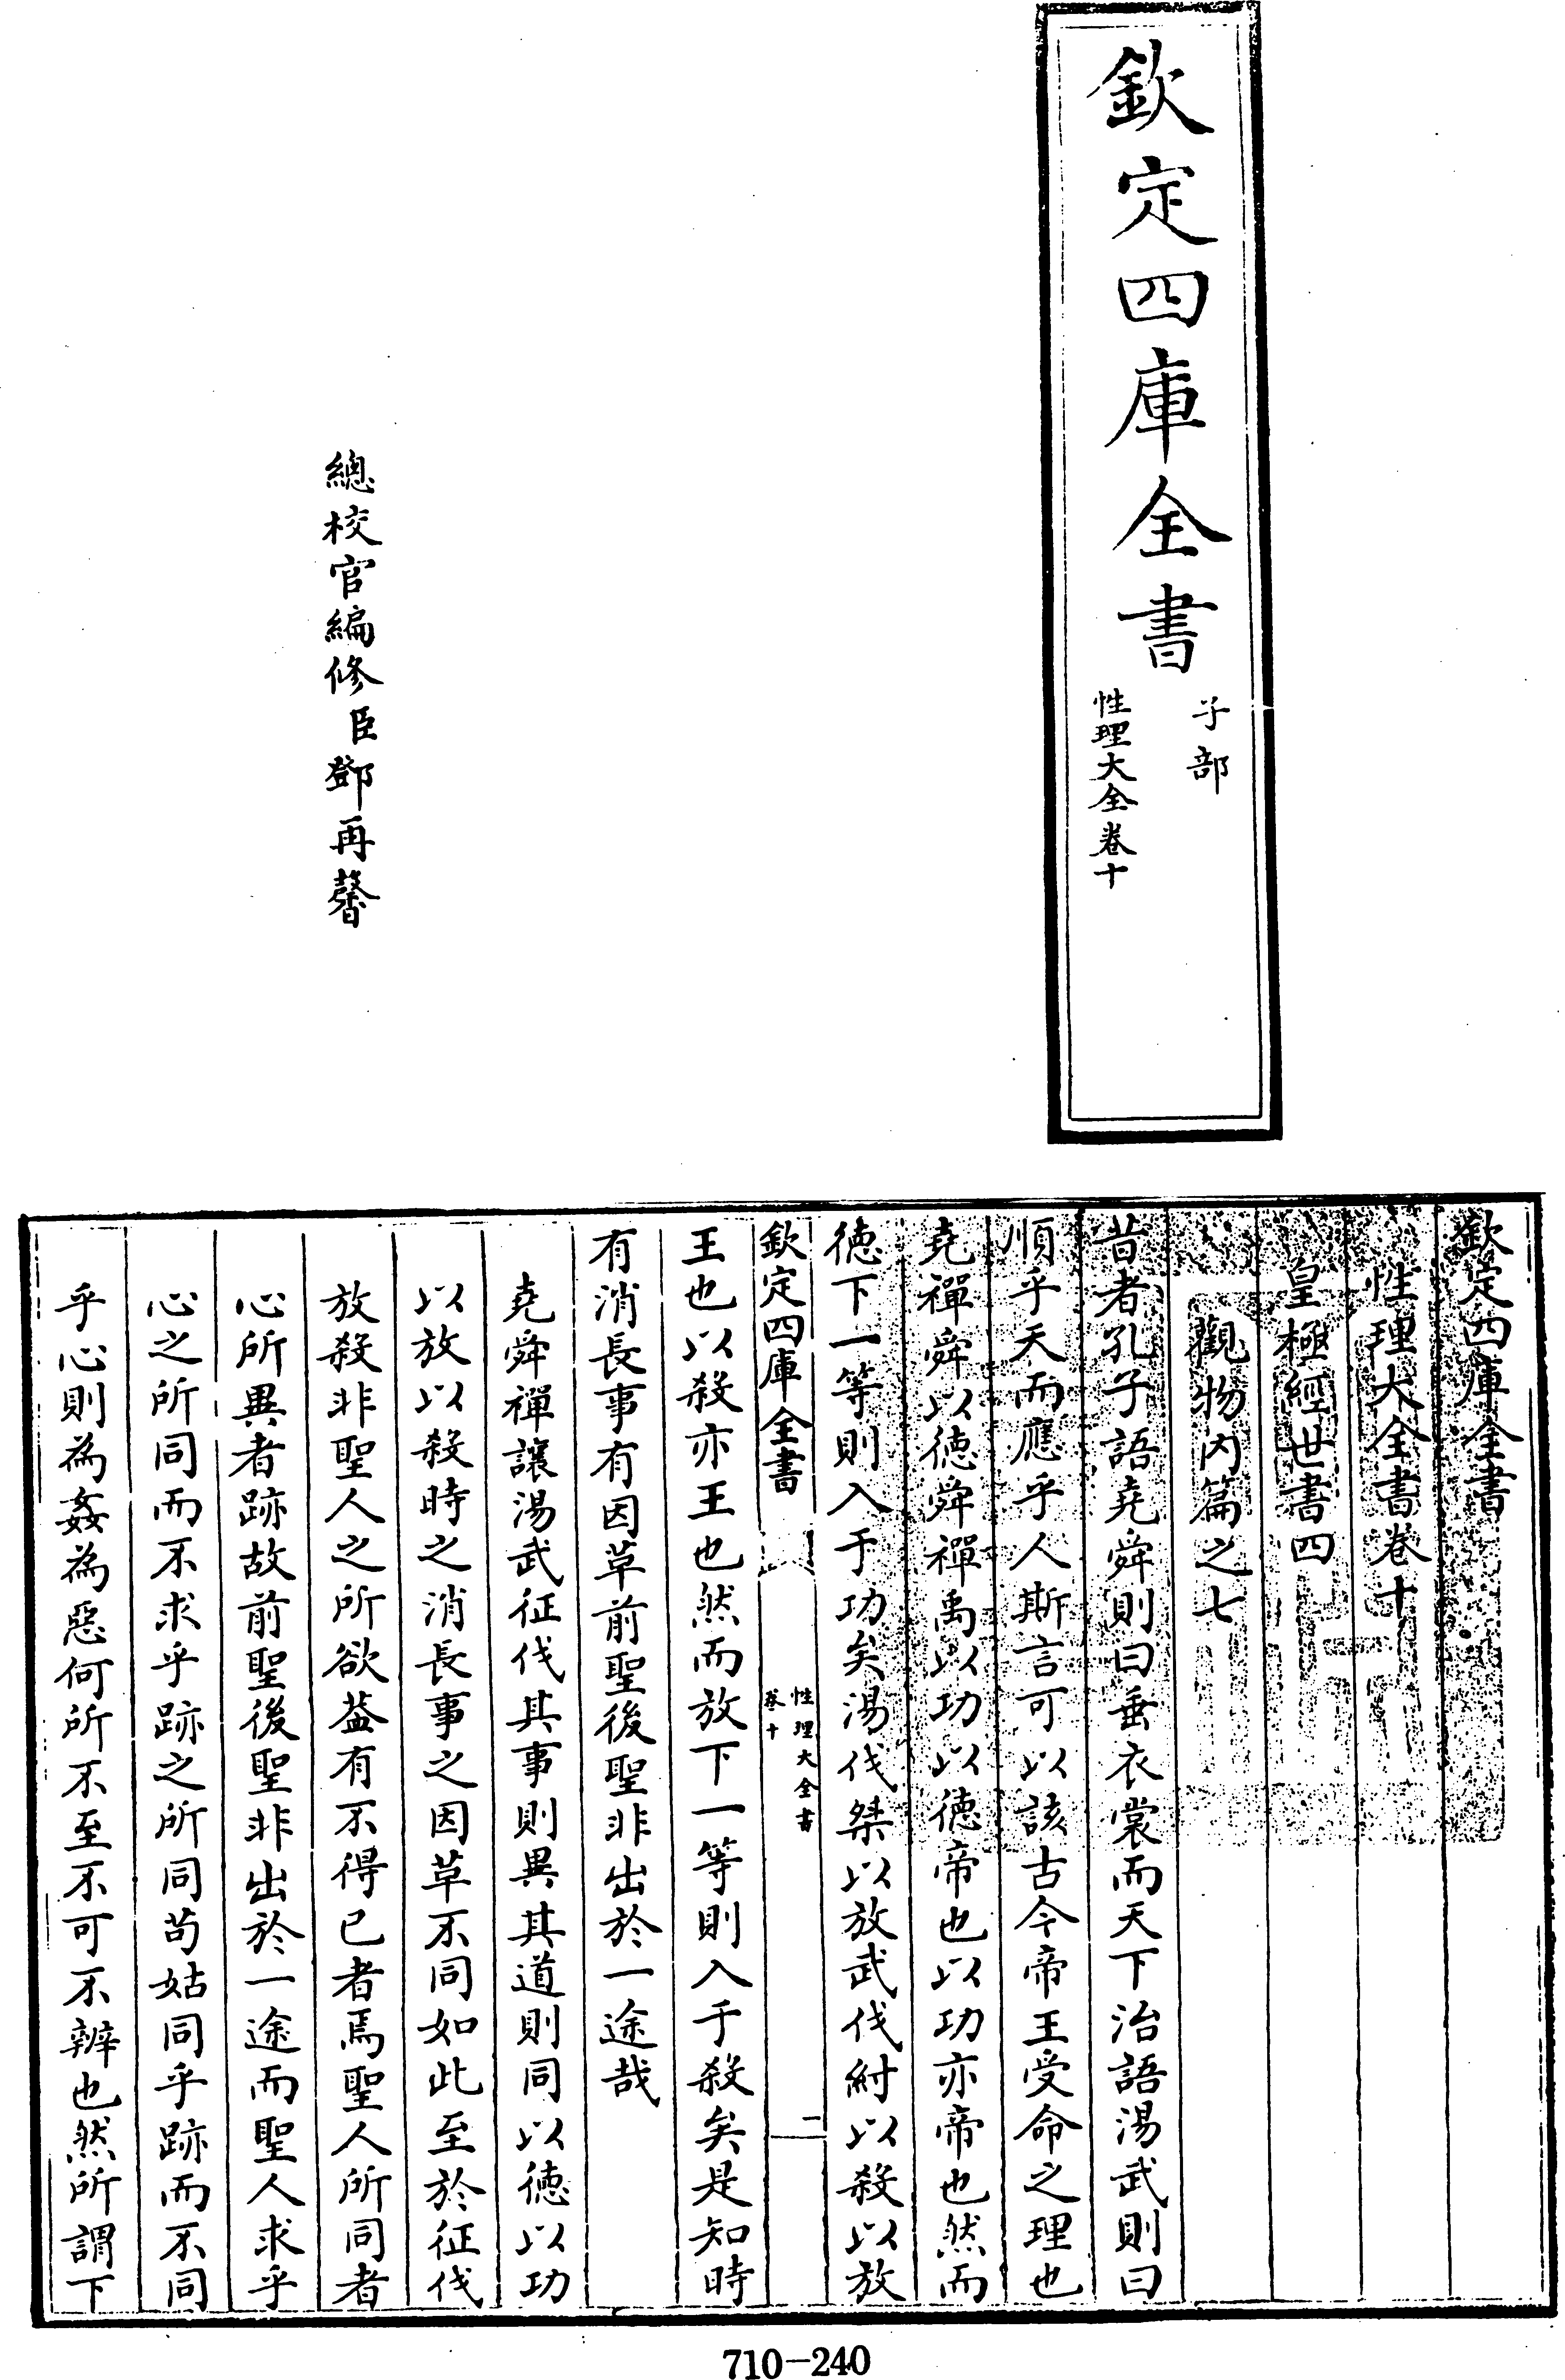 欽定四庫全書
子部
性理大全卷十
總校官編修臣鄧再馨
欽定四庫全書
性理大全書卷十
皇極經世書四
觀物内篇之七
昔者孔子語堯舜則曰垂衣裳而天下治語湯武則曰
順乎天而應乎人斯言可以該古今帝王受命之理也
堯禪舜以徳舜禪禹以功以徳帝也以功亦帝也然而
徳下一等則入于功矣湯伐桀以放武伐紂以殺以放
欽定四庫全書
性理大全書
卷十
一
王也以殺亦王也然而放下一等則入于殺矣是知時
有消長事有因革前聖後聖非出於一途哉
堯舜禪讓湯武征伐其事則異其道則同以徳以功
以放以殺時之消長事之因革不同如此至於征伐
放殺非聖人之所欲葢有不得已者焉聖人所同者
心所異者跡故前聖後聖非出於一途而聖人求乎
心之所同而不求乎跡之所同苟姑同乎跡而不同
乎心則為姦為惡何所不至不可不辨也然所謂下
710-240